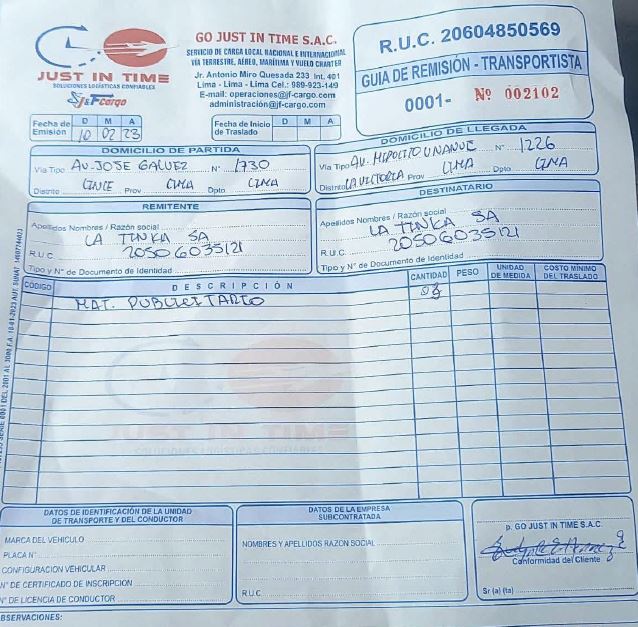 JUST IN TIME
SOLUCIONES LOGÍSTICAS CONFIABLES
J&F cargo
GO JUST IN TIME S.A.C.
SERVICIO DE CARGA LOCAL NACIONAL E INTERNACIONAL
VÍA TERRESTRE, AÉREO, MARÍTIMA Y VUELO CHARTER
Jr. Antonio Miro Quesada 233 Int. 401
Lima - Lima - Lima Cel.: 989-923-149
E-mail: operaciones@jf-cargo.com
administración@jf-cargo.com
R.U.C. 20604850569
GUIA DE REMISIÓN - TRANSPORTISTA
0001- Nº 002102
Fecha de Emisión D M A
10 02 23
Fecha de Inicio de Traslado D M A
DOMICILIO DE PARTIDA
Vía Tipo AV. JOSE GALVEZ N° 1730
Distrito LINCE Prov LIMA Dpto LIMA
DOMICILIO DE LLEGADA
Vía Tipo AV. HIPOLITO UNANUE N° 1226
Distrito LA VICTORIA Prov LIMA Dpto LIMA
REMITENTE
Apellidos Nombres / Razón social
LA TINKA SA
R.U.C. 20506035121
Tipo y N° de Documento de Identidad
DESTINATARIO
Apellidos Nombres / Razón social
LA TINKA SA
R.U.C. 20506035121
Tipo y N° de Documento de Identidad
CÓDIGO DESCRIPCIÓN CANTIDAD PESO UNIDAD DE MEDIDA COSTO MÍNIMO DEL TRASLADO
MAT. PUBLICITARIO
JUST IN TIME
SOLUCIONES LOGÍSTICAS CONFIABLES
DATOS DE IDENTIFICACIÓN DE LA UNIDAD
DE TRANSPORTE Y DEL CONDUCTOR
MARCA DEL VEHICULO
PLACA N°
CONFIGURACIÓN VEHICULAR
N° DE CERTIFICADO DE INSCRIPCIÓN
N° DE LICENCIA DE CONDUCTOR
DATOS DE LA EMPRESA
SUBCONTRATADA
NOMBRES Y APELLIDOS RAZÓN SOCIAL
R.U.C
p. GO JUST IN TIME S.A.C.
Conformidad del Cliente
Sr (a) (ta)
OBSERVACIONES: